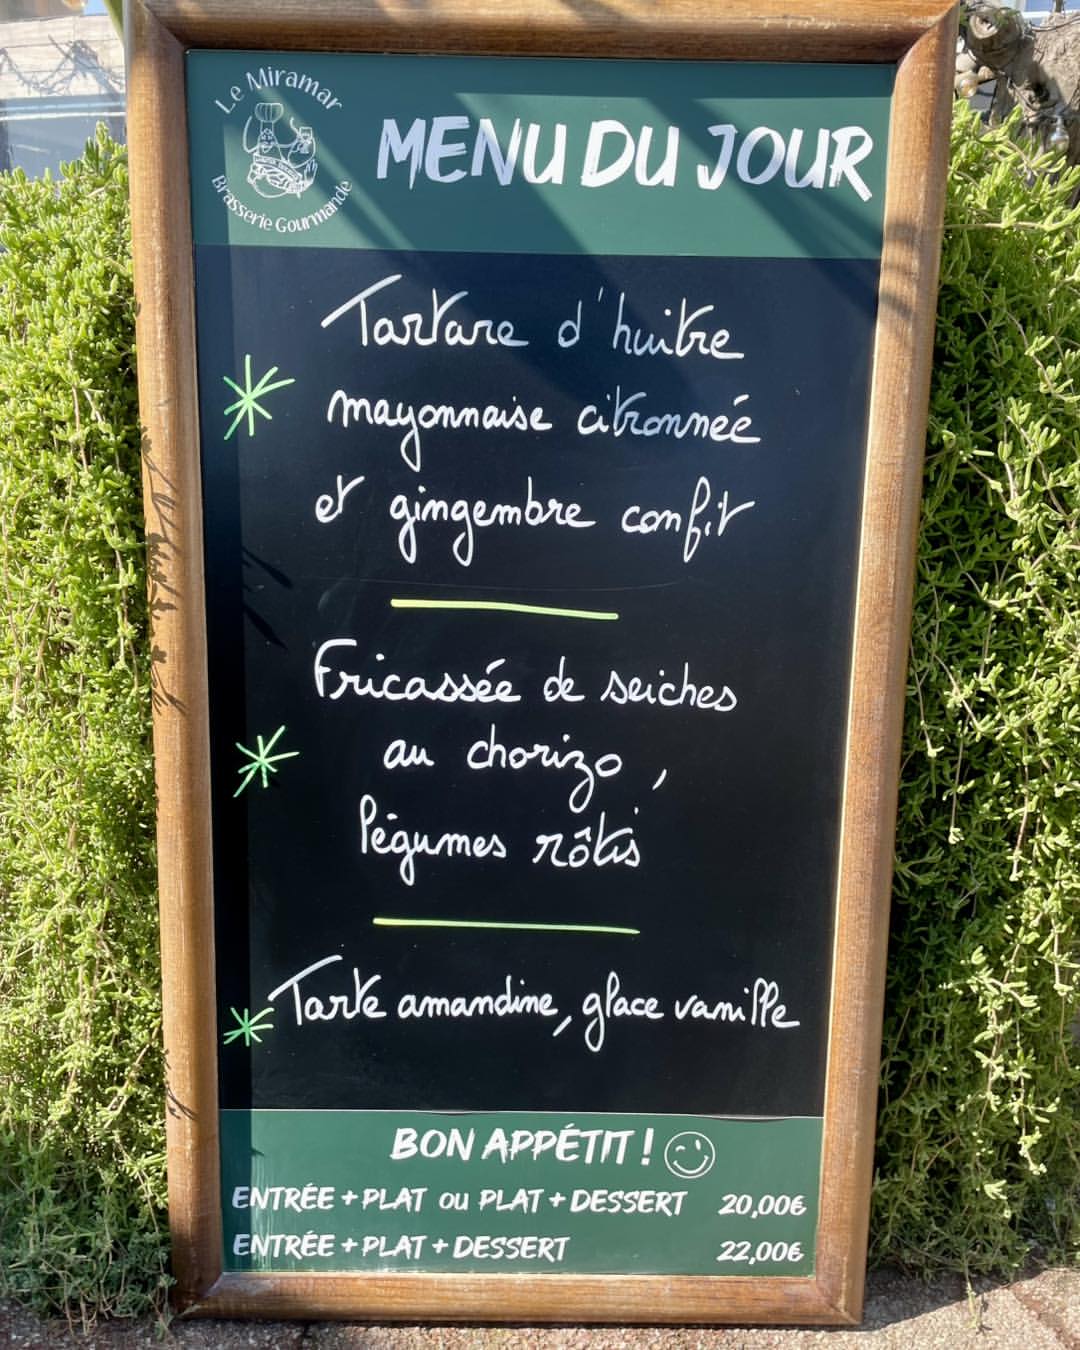 Le Miramar
Brasserie Gourmande
MENU DU JOUR
Tartare d'huitre
mayonnaise citronnée
et gingembre confit
Fricassée de seiches
au chorizo,
légumes rôtis
Tarte amandine, glace vanille
BON APPÉTIT !
ENTRÉE + PLAT OU PLAT + DESSERT 20,00€
ENTRÉE + PLAT + DESSERT 22,00€